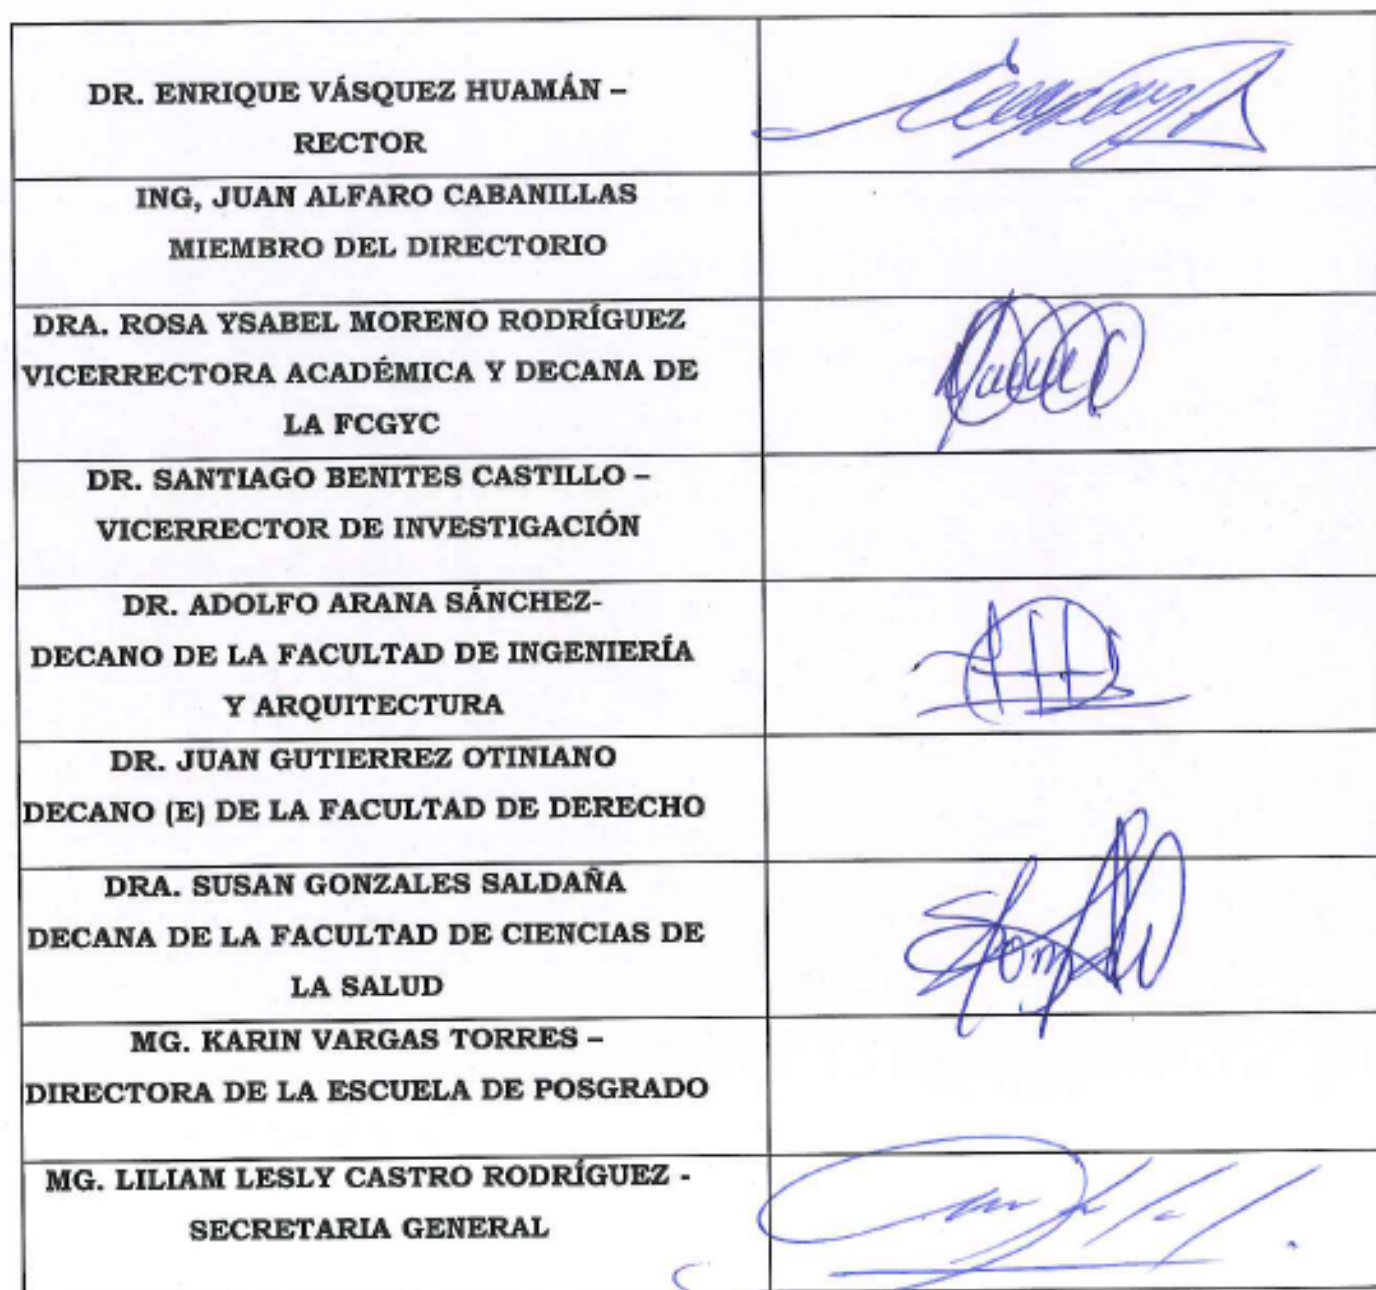 DR. ENRIQUE VÁSQUEZ HUAMÁN –
RECTOR
ING, JUAN ALFARO CABANILLAS
MIEMBRO DEL DIRECTORIO
DRA. ROSA YSABEL MORENO RODRÍGUEZ
VICERRECTORA ACADÉMICA Y DECANA DE
LA FCGYC
DR. SANTIAGO BENITES CASTILLO –
VICERRECTOR DE INVESTIGACIÓN
DR. ADOLFO ARANA SÁNCHEZ-
DECANO DE LA FACULTAD DE INGENIERÍA
Y ARQUITECTURA
DR. JUAN GUTIERREZ OTINIANO
DECANO (E) DE LA FACULTAD DE DERECHO
DRA. SUSAN GONZALES SALDAÑA
DECANA DE LA FACULTAD DE CIENCIAS DE
LA SALUD
MG. KARIN VARGAS TORRES –
DIRECTORA DE LA ESCUELA DE POSGRADO
MG. LILIAM LESLY CASTRO RODRÍGUEZ -
SECRETARIA GENERAL